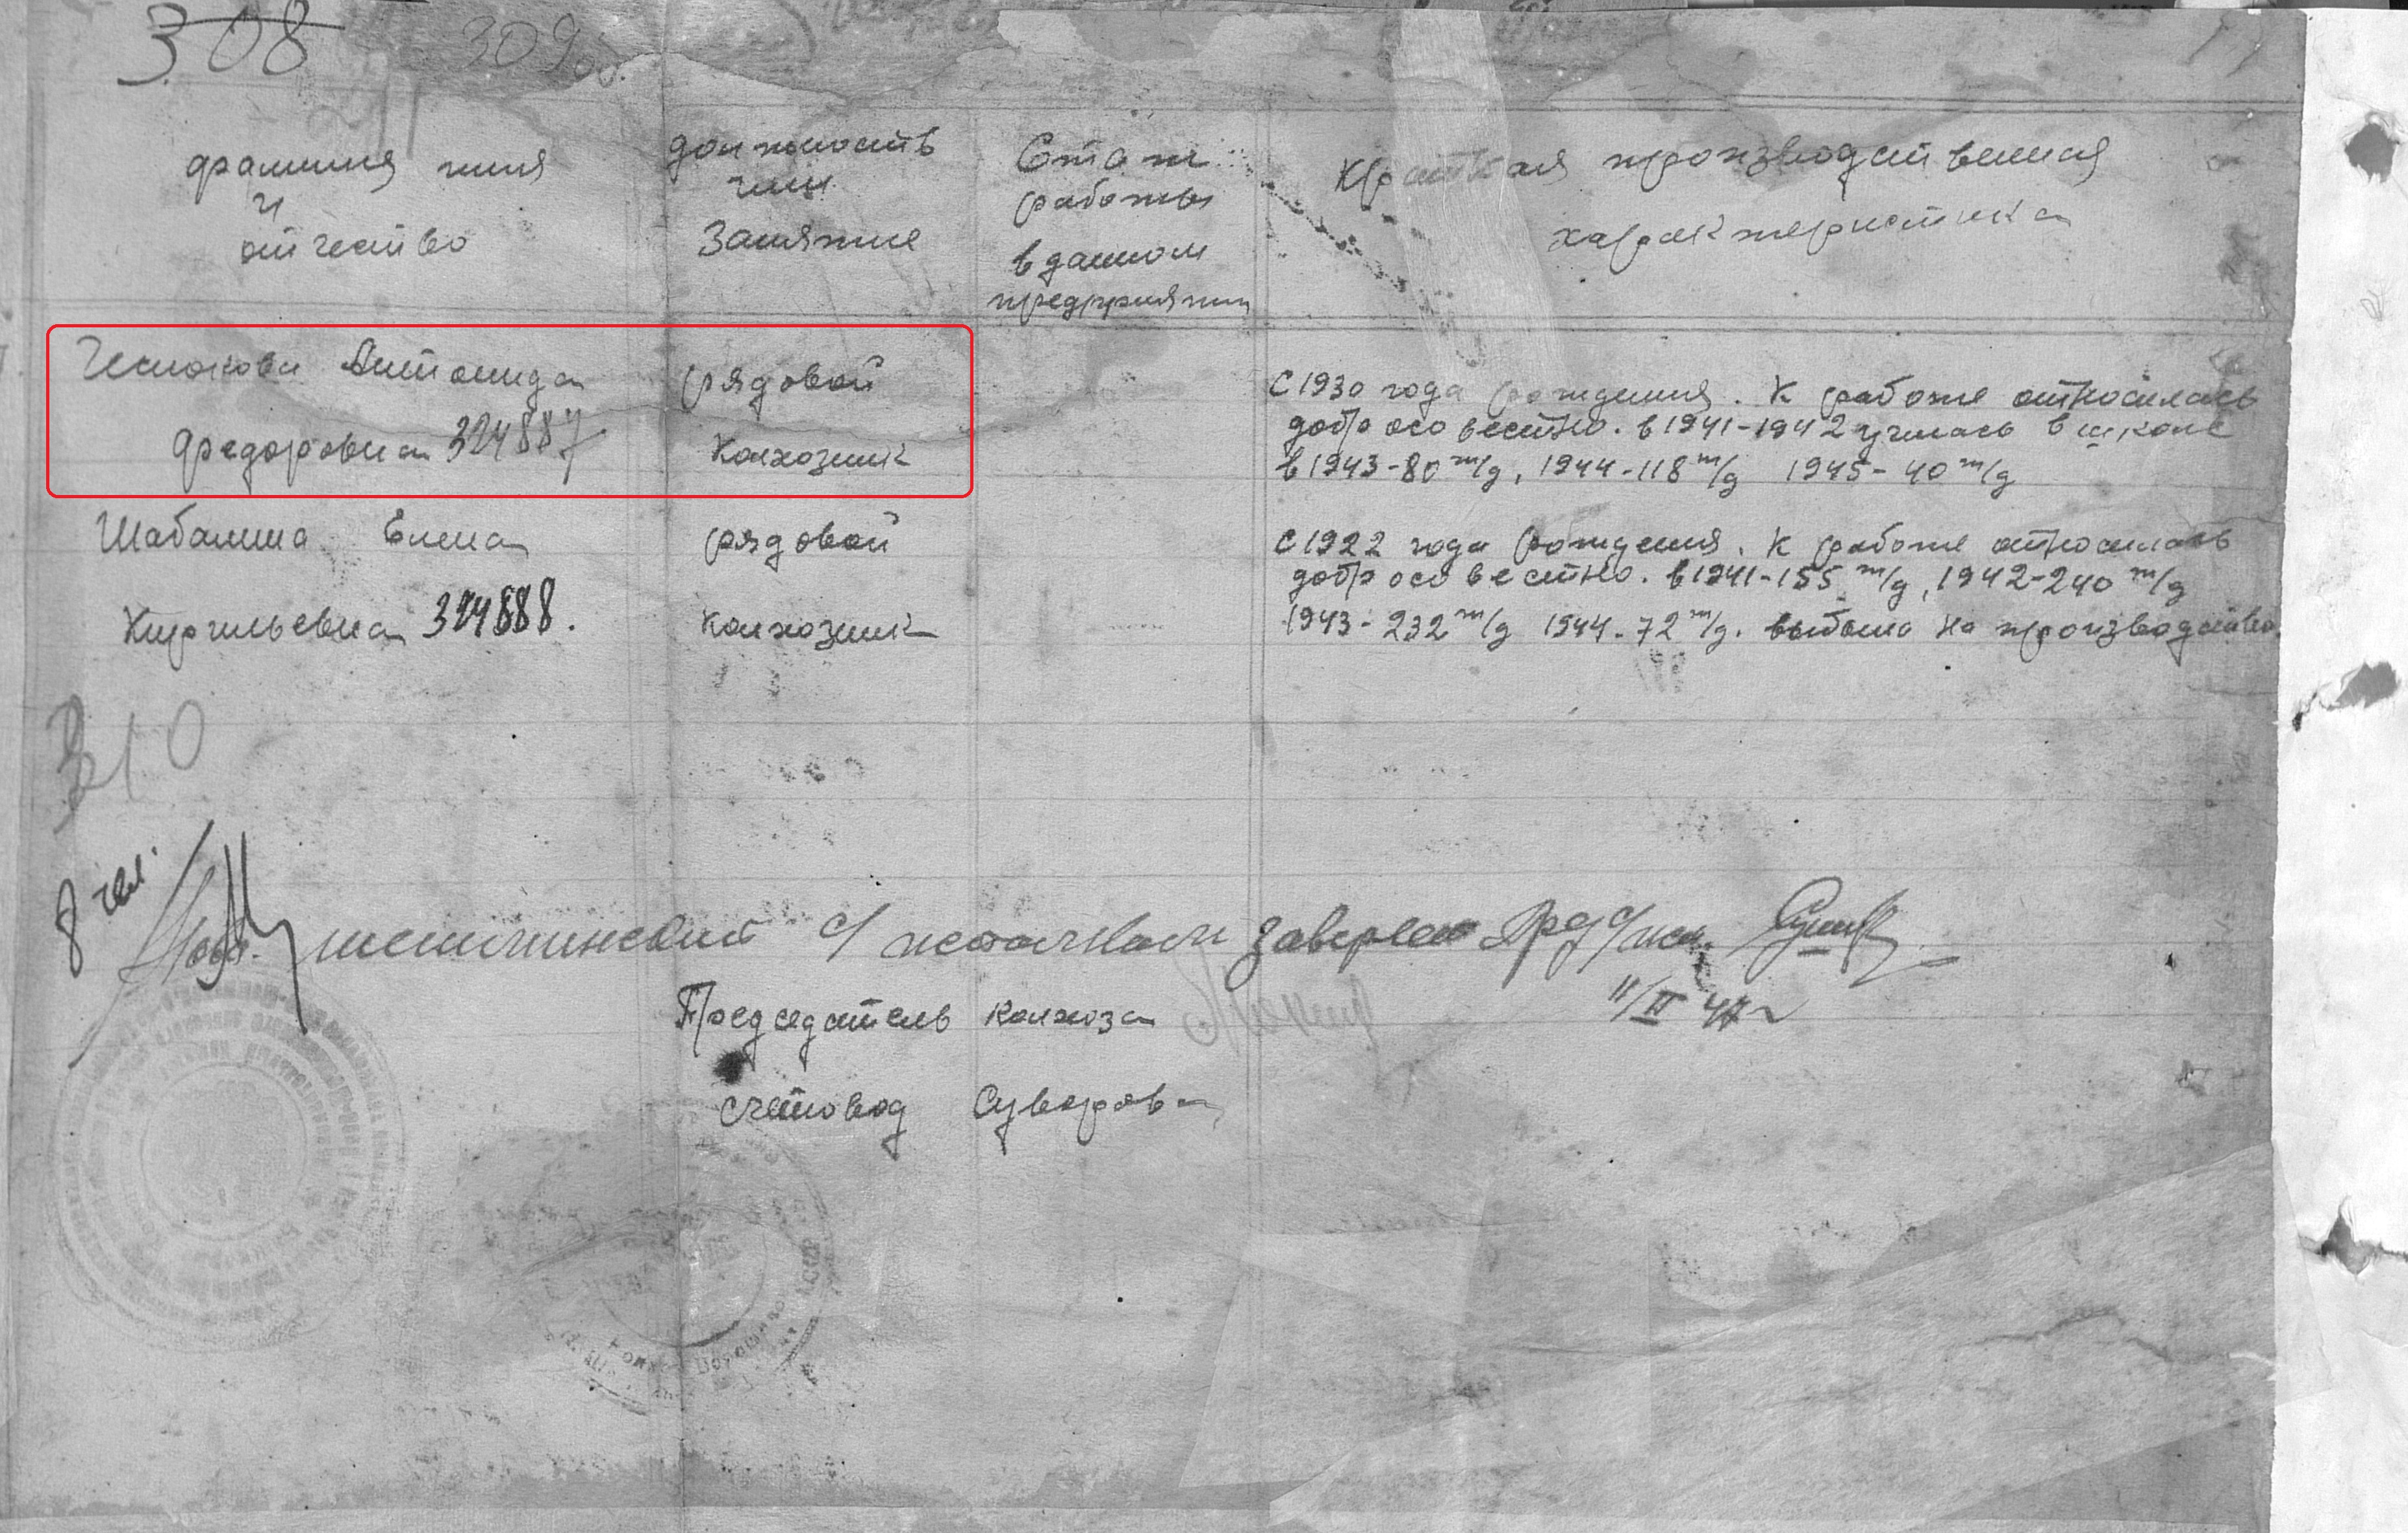 308 309об.
фамилия имя
и
отчество
должность
или
занятие
Стаж
работы
в данном
предприятии
Краткая производственная
характеристика
Чеснокова Антонида
Федоровна 324887
рядовой
колхозник
С 1930 года рождения. К работе относилась
добросовестно. в 1941-1942 училась в школе
в 1943-80 т/д, 1944-118 т/д 1945-40 т/д
Шабалина Елена
Кирильевна 324888.
рядовой
колхозник
С 1922 года рождения. К работе относилась
добросовестно. в 1941-155 т/д, 1942-240 т/д
1943-232 т/д 1944-72 т/д. выбыла на производство
310
8 чел.
с/исполком заверяет
11/II 47г
Председатель колхоза
Счетовод Суворова